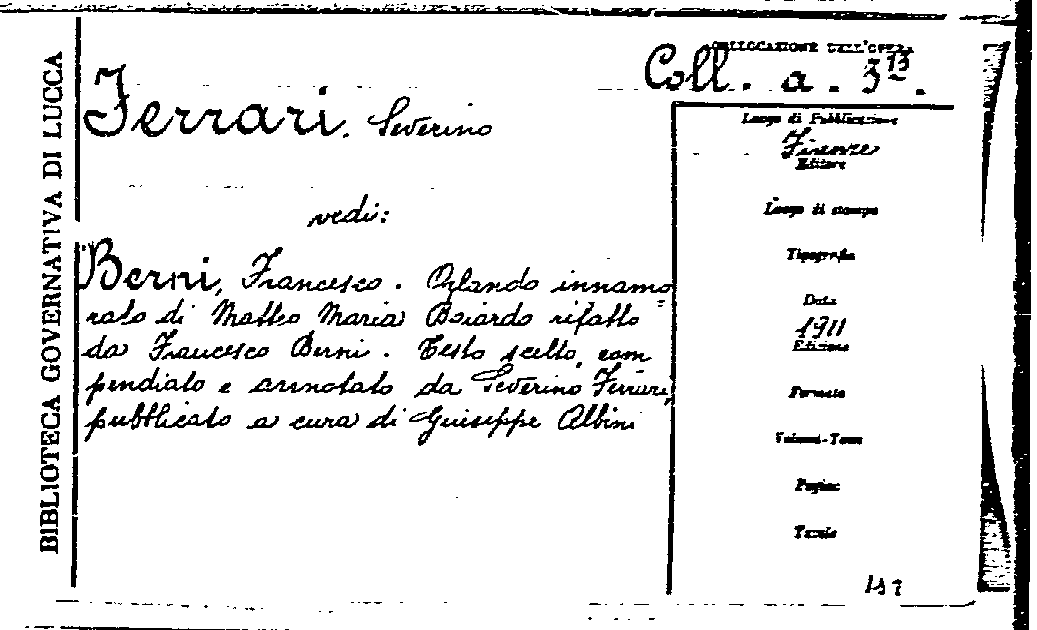 BIBLIOTECA GOVERNATIVA DI LUCCA
COLLOCAZIONE DELL'OPERA
Coll. a. 3 13.
Ferrari, Severino
vedi:
Berni, Francesco. Orlando innamo=
rato di Matteo Maria Boiardo rifatto
da Francesco Berni. Testo scelto, com
pendiato e annotato da Severino Ferrari,
pubblicato a cura di Giuseppe Albini
Luogo di Pubblicazione
Firenze
Editore
Luogo di stampa
Tipografia
Data
1911
Edizione
Formato
Volumi-Tomi
Pagine
Tavole